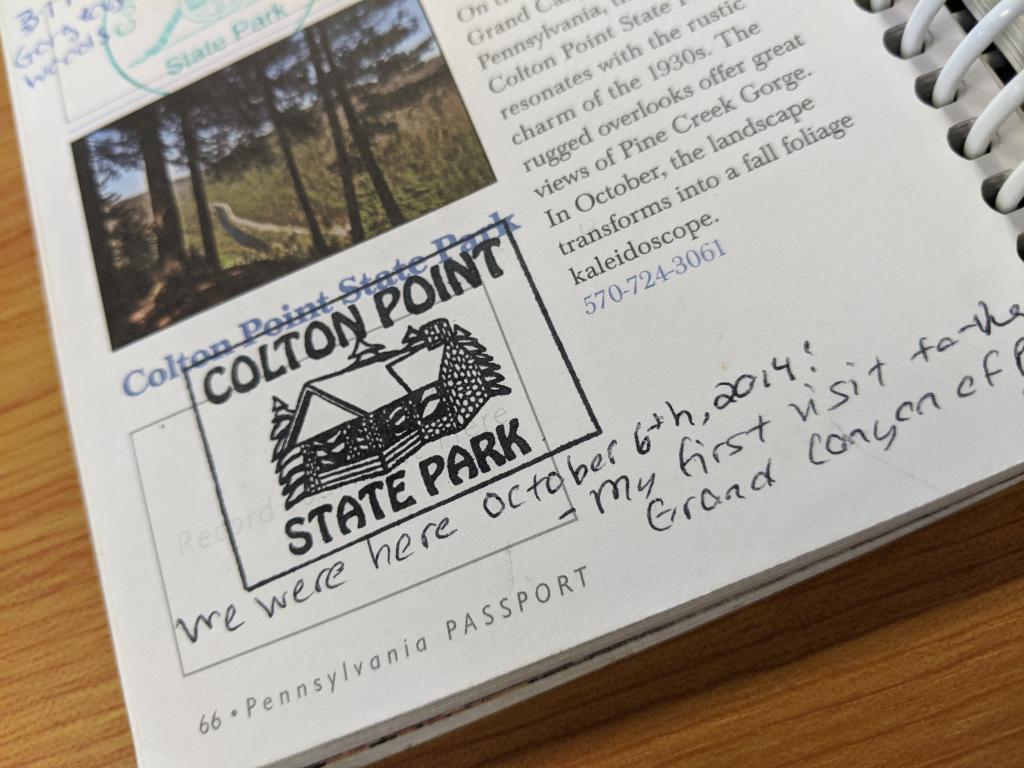 State Park
On
Grand
Pennsylvania,
Colton Point State
resonates with the rustic
charm of the 1930s. The
rugged overlooks offer great
views of Pine Creek Gorge.
In October, the landscape
transforms into a fall foliage
kaleidoscope.
570-724-3061
Colton Point State Park
COLTON POINT
STATE PARK
Record
We were here october 6th, 2014!
- My first visit to the
Grand Canyon of
66 • Pennsylvania PASSPORT